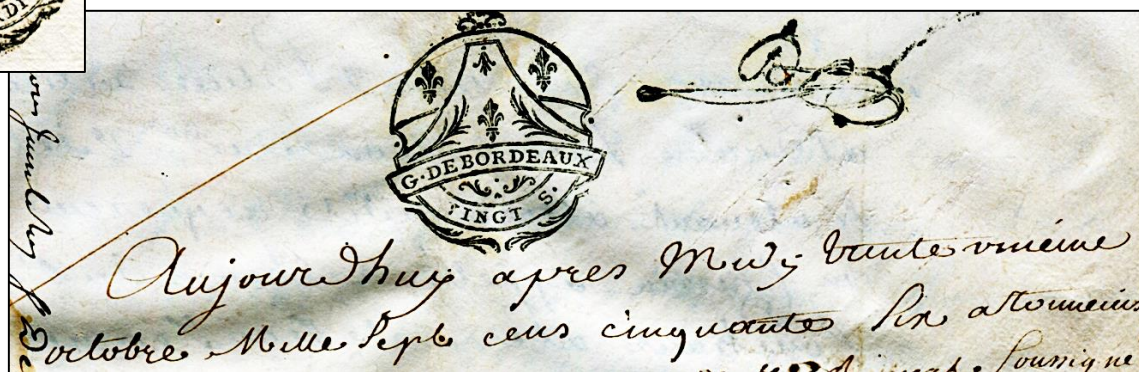 G. DE BORDEAUX
VINGT S.
Aujourdhuy apres Midy trente unieme
octobre Mille Sept cens cinquante Six a tonneins
Soussigné